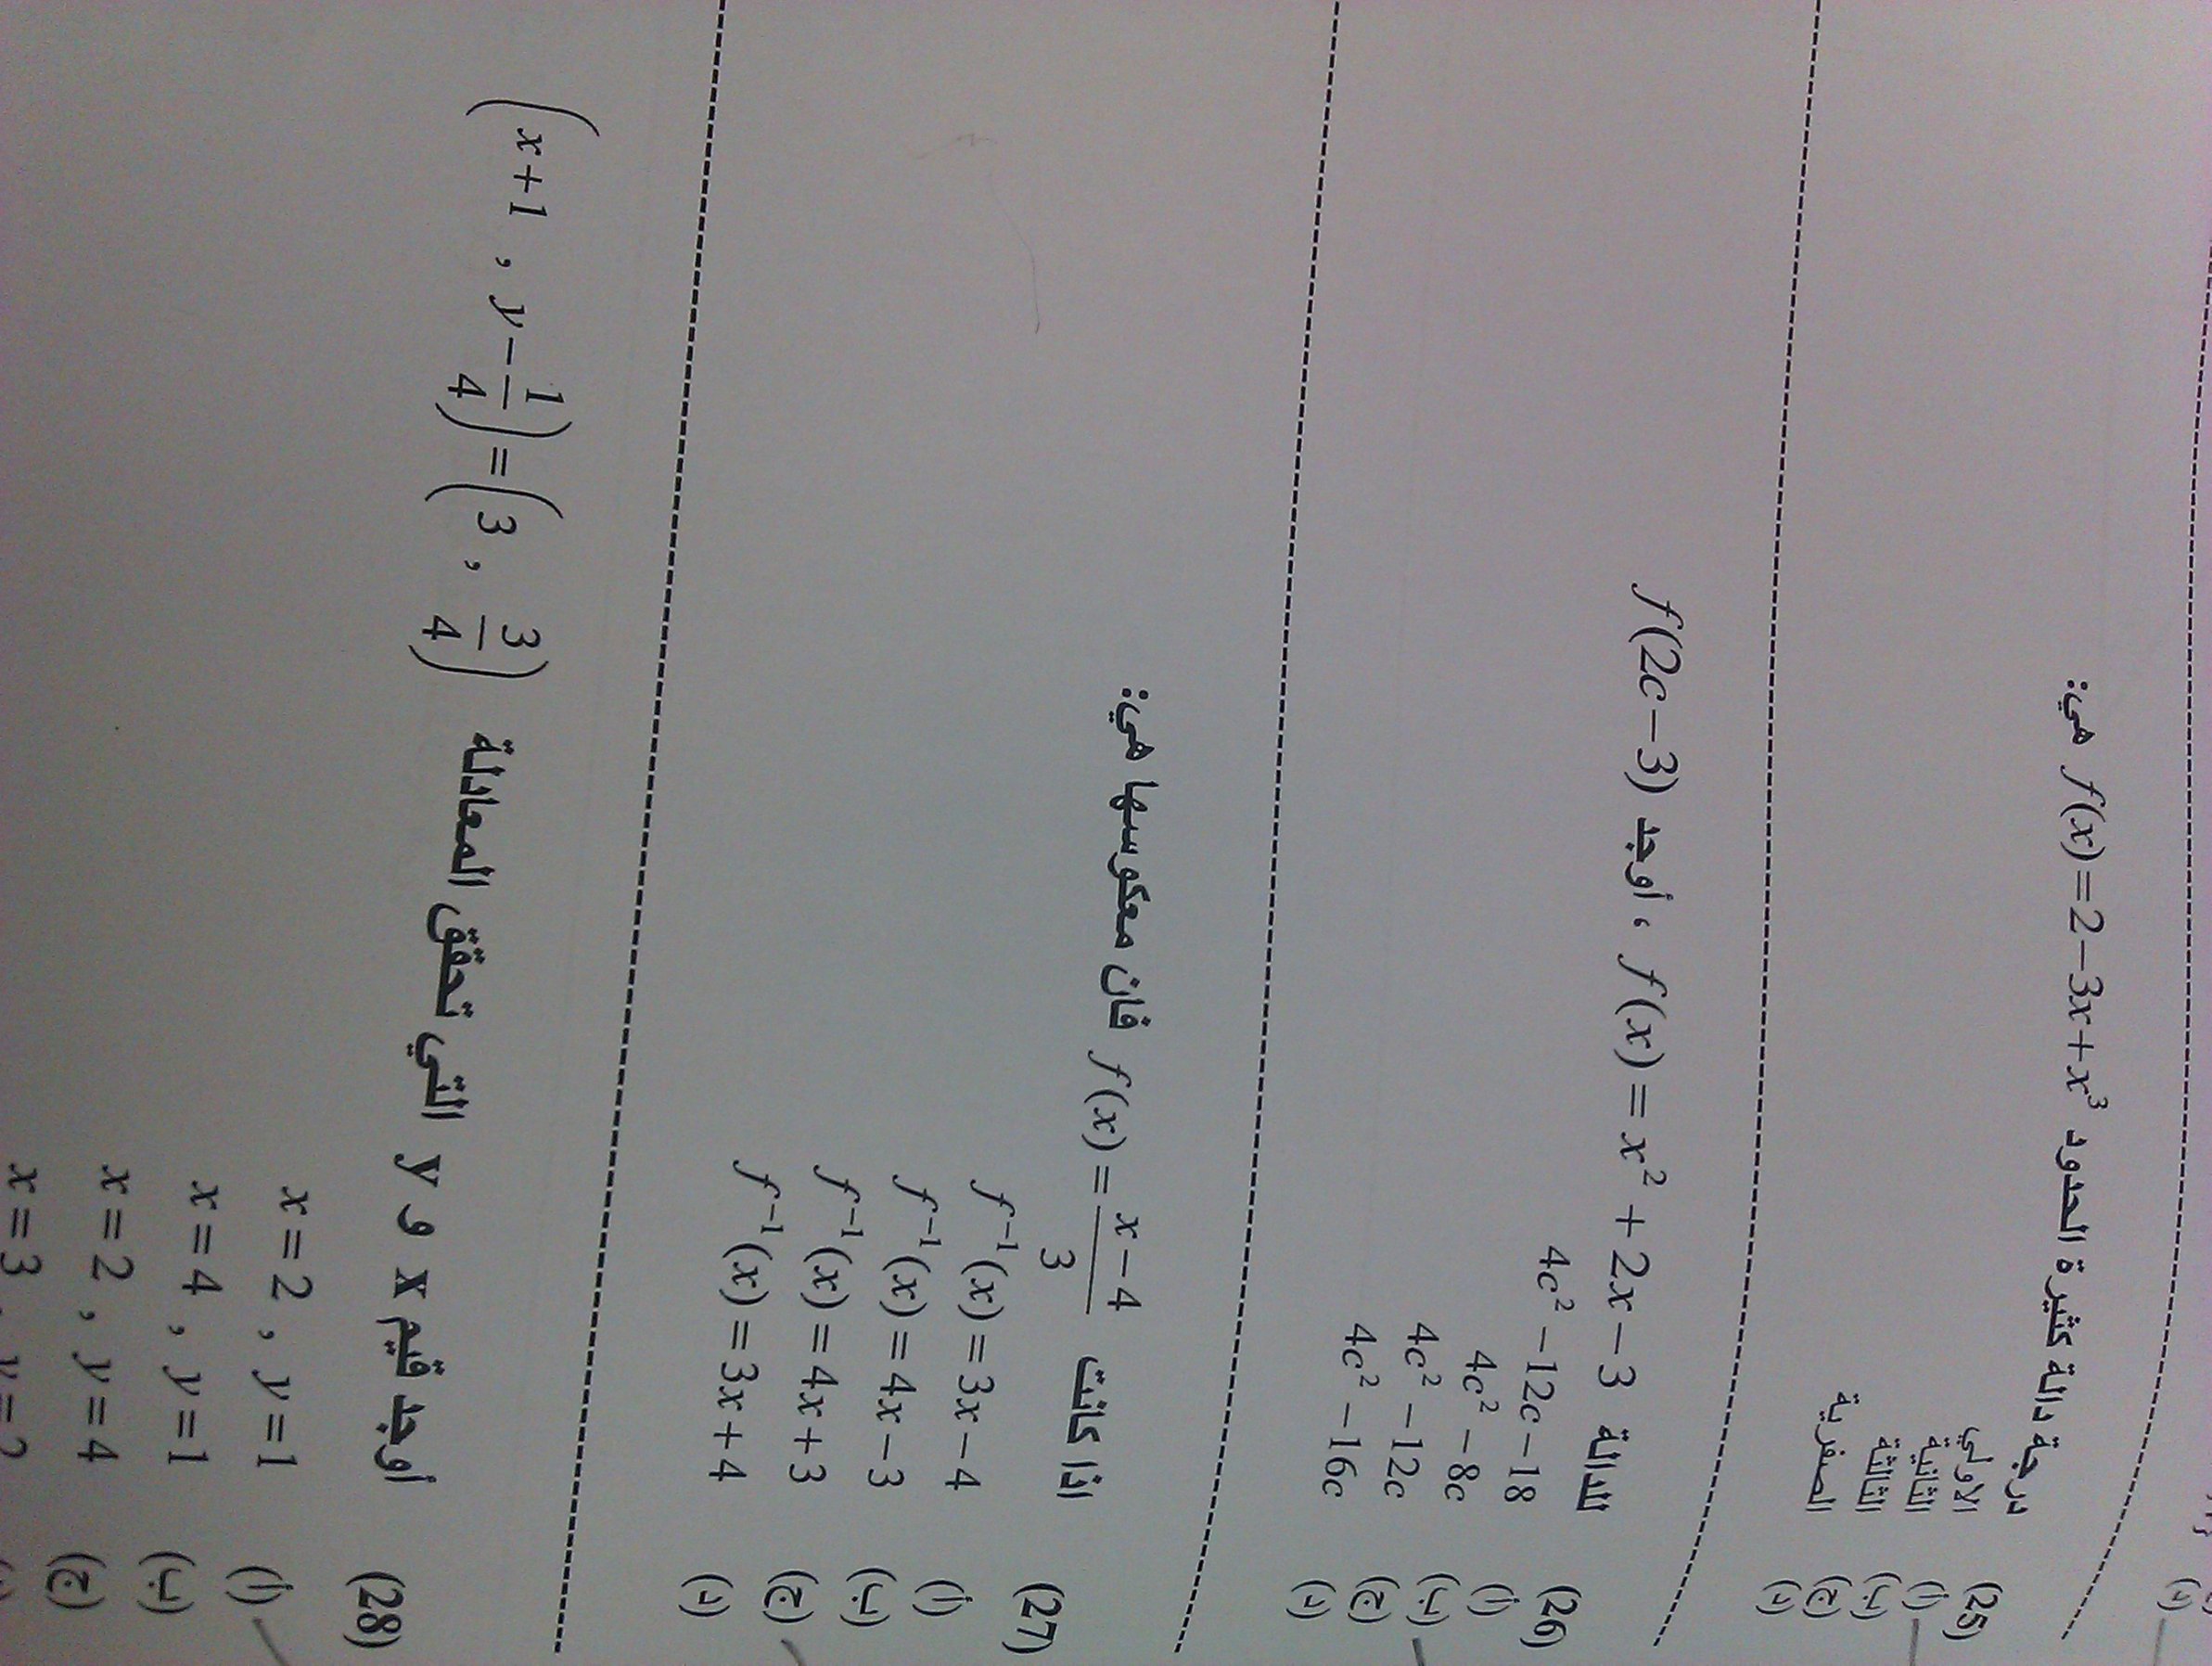 (25) درجة دالة كثيرة الحدود f(x)=2−3x+x³ هي:
(أ) الاولي
(ب) الثانية
(ج) الثالثة
(د) الصفرية
(26) للدالة f(x) = x² + 2x − 3 ، أوجد f(2c−3)
(أ) 4c² −12c −18
(ب) 4c² − 8c
(ج) 4c² −12c
(د) 4c² −16c
(27) اذا كانت f(x) = (x−4)/3 فان معكوسها هي:
(أ) f⁻¹(x) = 3x − 4
(ب) f⁻¹(x) = 4x − 3
(ج) f⁻¹(x) = 4x + 3
(د) f⁻¹(x) = 3x + 4
(28) أوجد قيم x و y التي تحقق المعادلة (x+1 , y−1/4) = (3 , 3/4)
(أ) x = 2 , y = 1
(ب) x = 4 , y = 1
(ج) x = 2 , y = 4
x = 3